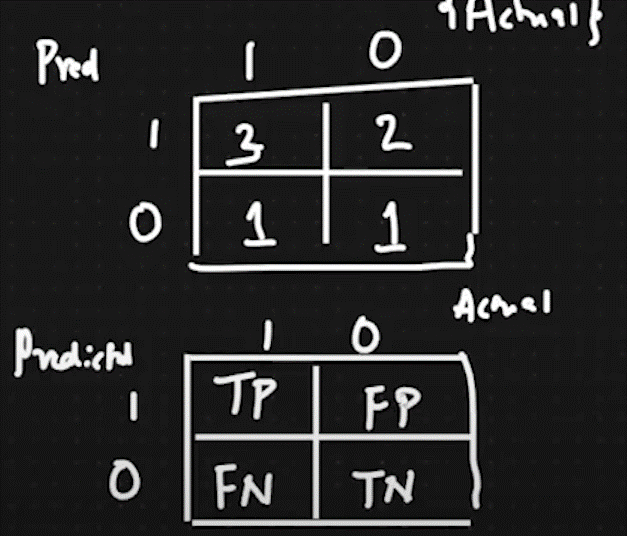 {Actual}
Pred 1 0
1 3 2
0 1 1
Actual
Predictd 1 0
1 TP FP
0 FN TN